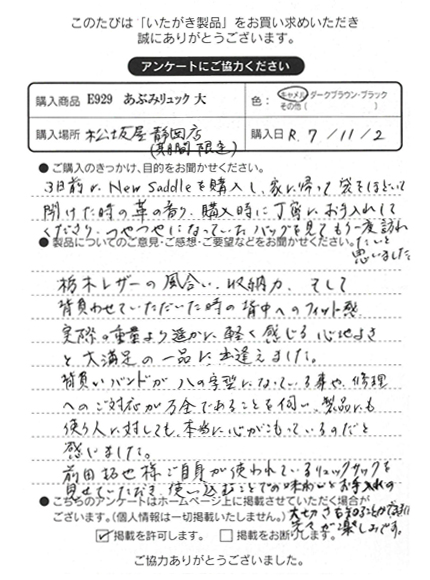 このたびは「いたがき製品」をお買い求めいただき
誠にありがとうございます。
アンケートにご協力ください
購入商品 E929 あぶみリュック 大
色： キャメル・ダークブラウン・ブラック
その他（ ）
購入場所 松坂屋静岡店
(期間限定)
購入日 R. 7 / 11 / 2
● ご購入のきっかけ、目的をお聞かせください。
3日前に New Saddleを購入し、家に帰って袋をほどいて
開けた時の革の香り、購入時に丁寧にお手入れして
くださり、つやつやになっていたバッグを見てもう一度訪れ
たいと
思いました
● 製品についてのご意見・ご感想・ご要望などをお聞かせください。
栃木レザーの風合い、収納力、そして
背負わせていただいた時の背中へのフィット感
実際の重量より遥かに軽く感じる心地よさ
と大満足の一品に出逢えました。
背負いバンドが八の字型になっている事や、修理
へのご対応が万全であることを伺い、製品にも
使う人に対しても、本当に心がこもっているのだと
感じました。
前田拓也様ご自身が使われているリュックサックを
見せていただき、使い込むことでの味わいとお手入れの
大切さを知ることができ
先々が楽しみです。
● こちらのアンケートはホームページ上に掲載させていただく場合が
ございます。（個人情報は一切掲載いたしません。）
☑ 掲載を許可します。 □ 掲載をお断りします。
ご協力ありがとうございました。